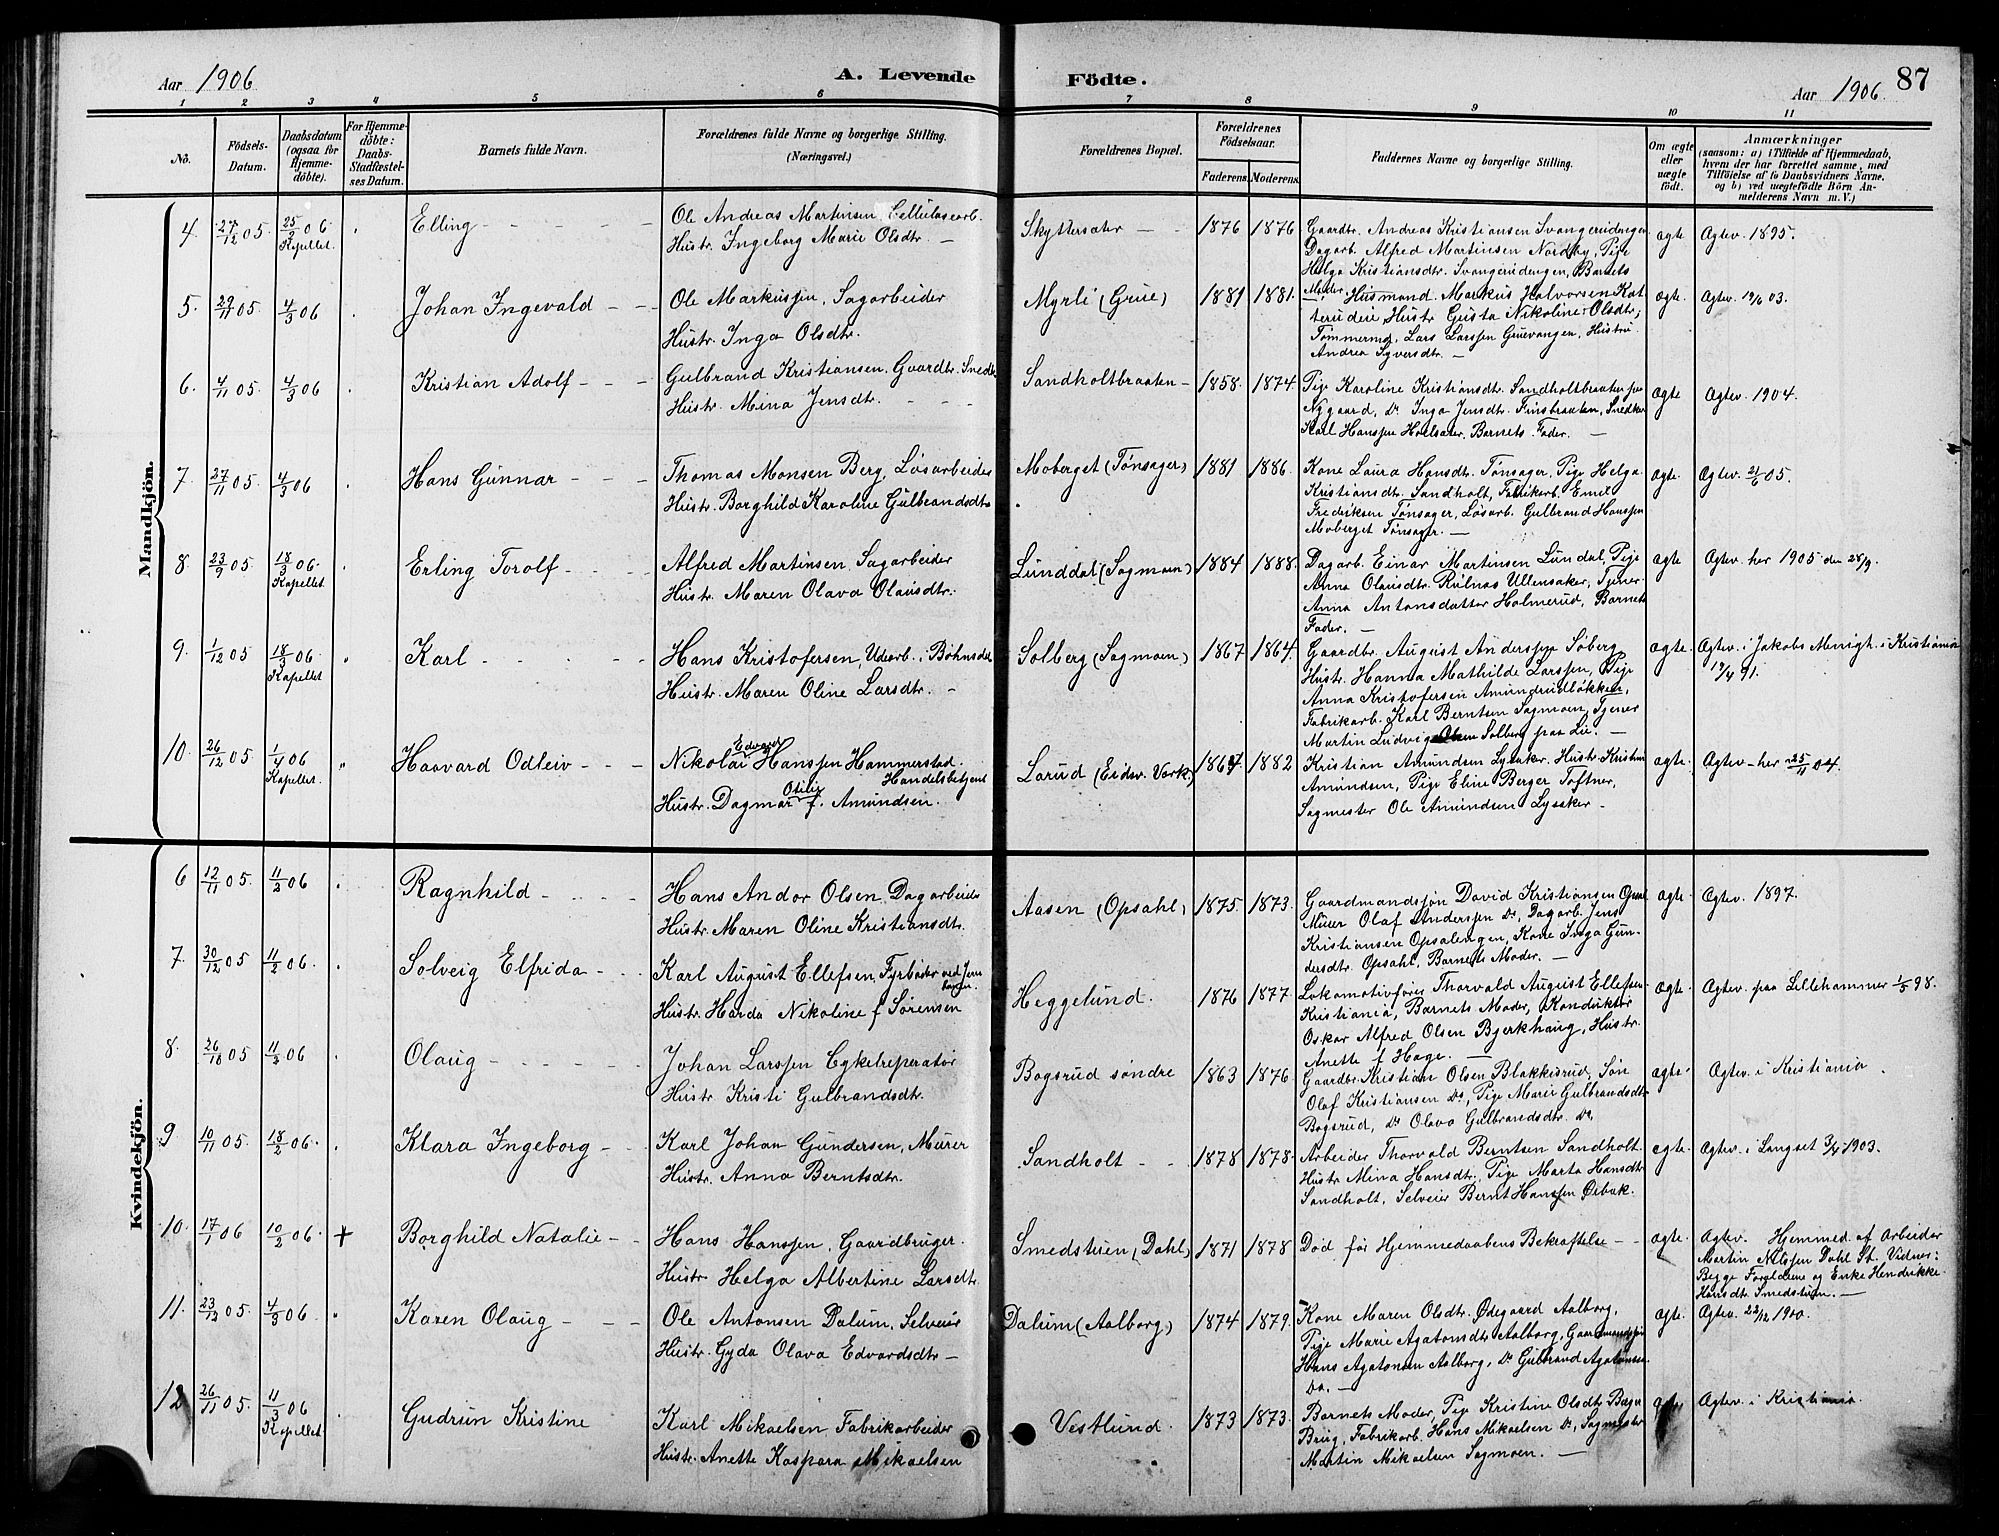 Aar 1906
A. Levende Födte.
Aar 1906. 87
1 2 3 4 5 6 7 8 9 10 11
No.
Födsels-Datum.
Daabsdatum (ogsaa for Hjemmedöbte).
For Hjemmedöbte: Daabs-Stadfæstelses Datum.
Barnets fulde Navn.
Forældrenes fulde Navne og borgerlige Stilling. (Næringsvei.)
Forældrenes Bopæl.
Forældrenes Födselsaar.
Faderens. Moderens.
Faddernes Navne og borgerlige Stilling.
Om ægte eller uægte födt.
Anmærkninger
(saasom: a) i Tilfælde af Hjemmedaab, hvem der har forrettet samme, med Tilföielse af to Daabsvidners Navne, og b) ved uægtefödte Börn Anmelderens Navn m. V.)
Mandkjön.
4. 27/12 05. 25/9 06 Kapellet
Elling
Ole Andreas Martinsen, Cellulosearb.
Hustr. Ingeborg Marie Olsdtr.
Skyttersæter 1876 1876
Gaardbr. Andreas Kristiansen Svangerudengen
Dagarb. Alfred Martinsen Nordby, Pige
Helga Kristiansdtr. Svangerudengen, Barnets
Moder.
ægte
Ægtev. 1895.
5. 29/11 05. 4/3 06
Johan Ingevald
Ole Markussen, Sagarbeider
Hustr. Inga Olsdtr.
Myrli (Grue) 1881 1881.
Husmand Markus Halvorsen Kat
terudeie, Hustr Gusta Nikoline Olsdtr;
Tømmermd. Lars Larssen Gruevangen, Hustru
Andrea Syversdtr.
ægte.
Ægtev. 19/6 03.
6. 4/11 05. 4/3 06
Kristian Adolf
Gulbrand Kristiansen, Gaardbr. Snedk
Hustr. Mina Jensdtr.
Sandholtbraaten 1858. 1874.
Pige Karoline Kristiansdtr. Sandholtbraaten paa
Nygaard, Do Inga Jensdtr. Finsbraaten, Snedker
Karl Hanssen Hoelsæter, Barnets Fader.
ægte
Ægtev. 1904.
7. 27/11 05 4/3 06
Hans Gunnar
Thomas Monsen Berg, Løsarbeider
Hustr. Borghild Karoline Gulbrandsdtr
Moberget (Tønsager) 1881 1886.
Kone Laura Hansdtr. Tønsager, Pige Helga
Kristiansdtr. Sandholt, Fabrikarb. Emil
Fredriksen Tønsager, Løsarb. Gulbrand Hanssen
Moberget Tønsager.
ægte.
Ægtev. 21/6 05.
8. 23/9 05 18/3 06. Kapellet
Erling Torolf
Alfred Martinsen, Sagarbeider
Hustr. Maren Olava Olausdtr.
Lunddal (Sagmoen) 1884 1888.
Dagarb. Einar Martinsen Lundal, Pige
Anna Olausdtr. Rulnas Ullensaker, Tjener
Anna Antonsdatter Holmerud, Barnets
Fader.
ægte
Ægtev. her 1905 den 28/9.
9. 1/12 05 18/3 06. Kapellet
Karl
Hans Kristofersen, Udearb. i Bøhnsdal
Hustr. Maren Oline Larsdtr.
Solberg (Sagmoen) 1867 1864.
Gaardbr. August Anderssen Søberg
Hustr. Hanna Mathilde Larssen, Pige
Anna Kristofersen Amundrudløkken,
Fabrikarb. Karl Berntsen Sagmoen, Tjener
Martin Ludvig Olsen Solberg paa Lie.
ægte.
Ægtev. i Jakobs Menigh. i Kristiania
19/4 91.
10. 26/12 05 1/4 06 Kapellet.
Haavard Odleiv
Nikolai Edvard Hanssen Hammerstad
Handelsbetjent
Hustr. Dagmar Otilie f. Amundsen.
Lorud (Eidsv. Værk) 1867 1882
Kristian Amundsen Lysaker, Hustr. Kristine
Amundsen, Pige Eline Berger Toftner,
Sagmester Ole Amundsen Lysaker
ægte.
Ægtev. her 25/11 04.
Kvindekjön.
6 12/11 05. 11/2 06
Ragnhild
Hans Andor Olsen, Dagarbeider
Hustr. Maren Oline Kristiansdtr.
Aasen (Opsahl) 1875. 1873.
Gaardmandssøn David Kristiansen Opsal
Murer Olaf Anderssen Do, Dagarb. Jens
Kristiansen Opsalengen, Kone Inga Gun-
dersdtr. Opsahl, Barnets Moder.
ægte
Ægtev. 1897.
7. 30/12 05 11/2 06.
Solveig Elfrida
Karl August Ellefsen, Fyrbøder ved Jern
banen.
Hustr. Harda Nikoline f Sørensen
Heggelund. 1876 1877.
Lokomotivfører Thorvald August Ellefsen
Kristiania, Barnets Moder, Konduktør
Oskar Alfred Olsen Bjerkhaug, Hustr.
Anette f Hage.
ægte.
Ægtev. paa Lillehammer 1/5 98.
8. 26/10 05 11/2 06
Olaug
Johan Larssen Cykelreperatør
Hustr. Kristi Gulbrandsdtr.
Bogsrud søndre 1863 1876.
Gaardbr. Kristian Olsen Blakkisrud, Søn
Olaf Kristiansen Do, Pige Marie Gulbrandsdtr
Bogsrud, Do Olava Gulbrandsdtr. Do.
ægte
Ægtev. i Kristiania
9 10/11 05. 18/2 06.
Klara Ingeborg
Karl Johan Gundersen, Murer
Hustr. Anna Berntsdtr.
Sandholt 1878 1878.
Arbeider Thorvald Berntsen Sandholt
Hustr Mina Hansdtr., Pige Marta Hansdtr
Sandholt, Selveier Bernt Hanssen Ørbæk.
ægte.
Ægtev. i Langset 3/4 1903.
10. 17/1 06 10/2 06. +
Borghild Natalie
Hans Hanssen, Gaardbruger.
Hustr Helga Albertine Larsdtr.
Smedstuen (Dahl) 1871 1878
Død før Hjemmedaabens Bekræftelse
ægte.
Ægtev. Hjemmed. af Arbeider
Martin Nilssen Dahl St. Vidner:
Begge Forældrene og Enke Henrikke
Hansdtr. Smedstuen.
11. 23/12 05. 4/3 06.
Karen Olaug
Ole Antonsen Dalum, Selveier
Hustr. Gyda Olava Edvardsdtr
Dalum (Aalborg) 1874 1879.
Kone Maren Olsdtr. Ødegaard Aalborg,
Pige Marie Agatonsdtr Aalborg, Gaardmandssøn
Hans Agatonsen Aalborg, Do Gulbrand Agatonsen
Do.
ægte.
Ægtev. 22/12 1900.
12 26/11 05. 11/3 06 Kapellet
Gudrun Kristine
Karl Mikaelsen Fabrikarbeider
Hustr. Anette Kaspara Mikaelsen
Vestlund. 1873 1873.
Barnets Moder, Pige Kristine Olsdtr Bøn
Brug, Fabrikarb. Hans Mikaelsen Do, Sagmester
Martin Mikaelsen Sagmoen.
ægte
Ægtev. i Kristiania.